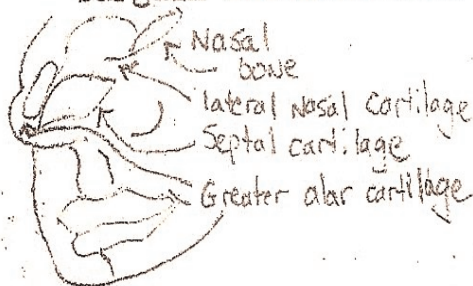 Nasal
bone
lateral Nasal Cartilage
Septal cartilage
Greater alar cartilage